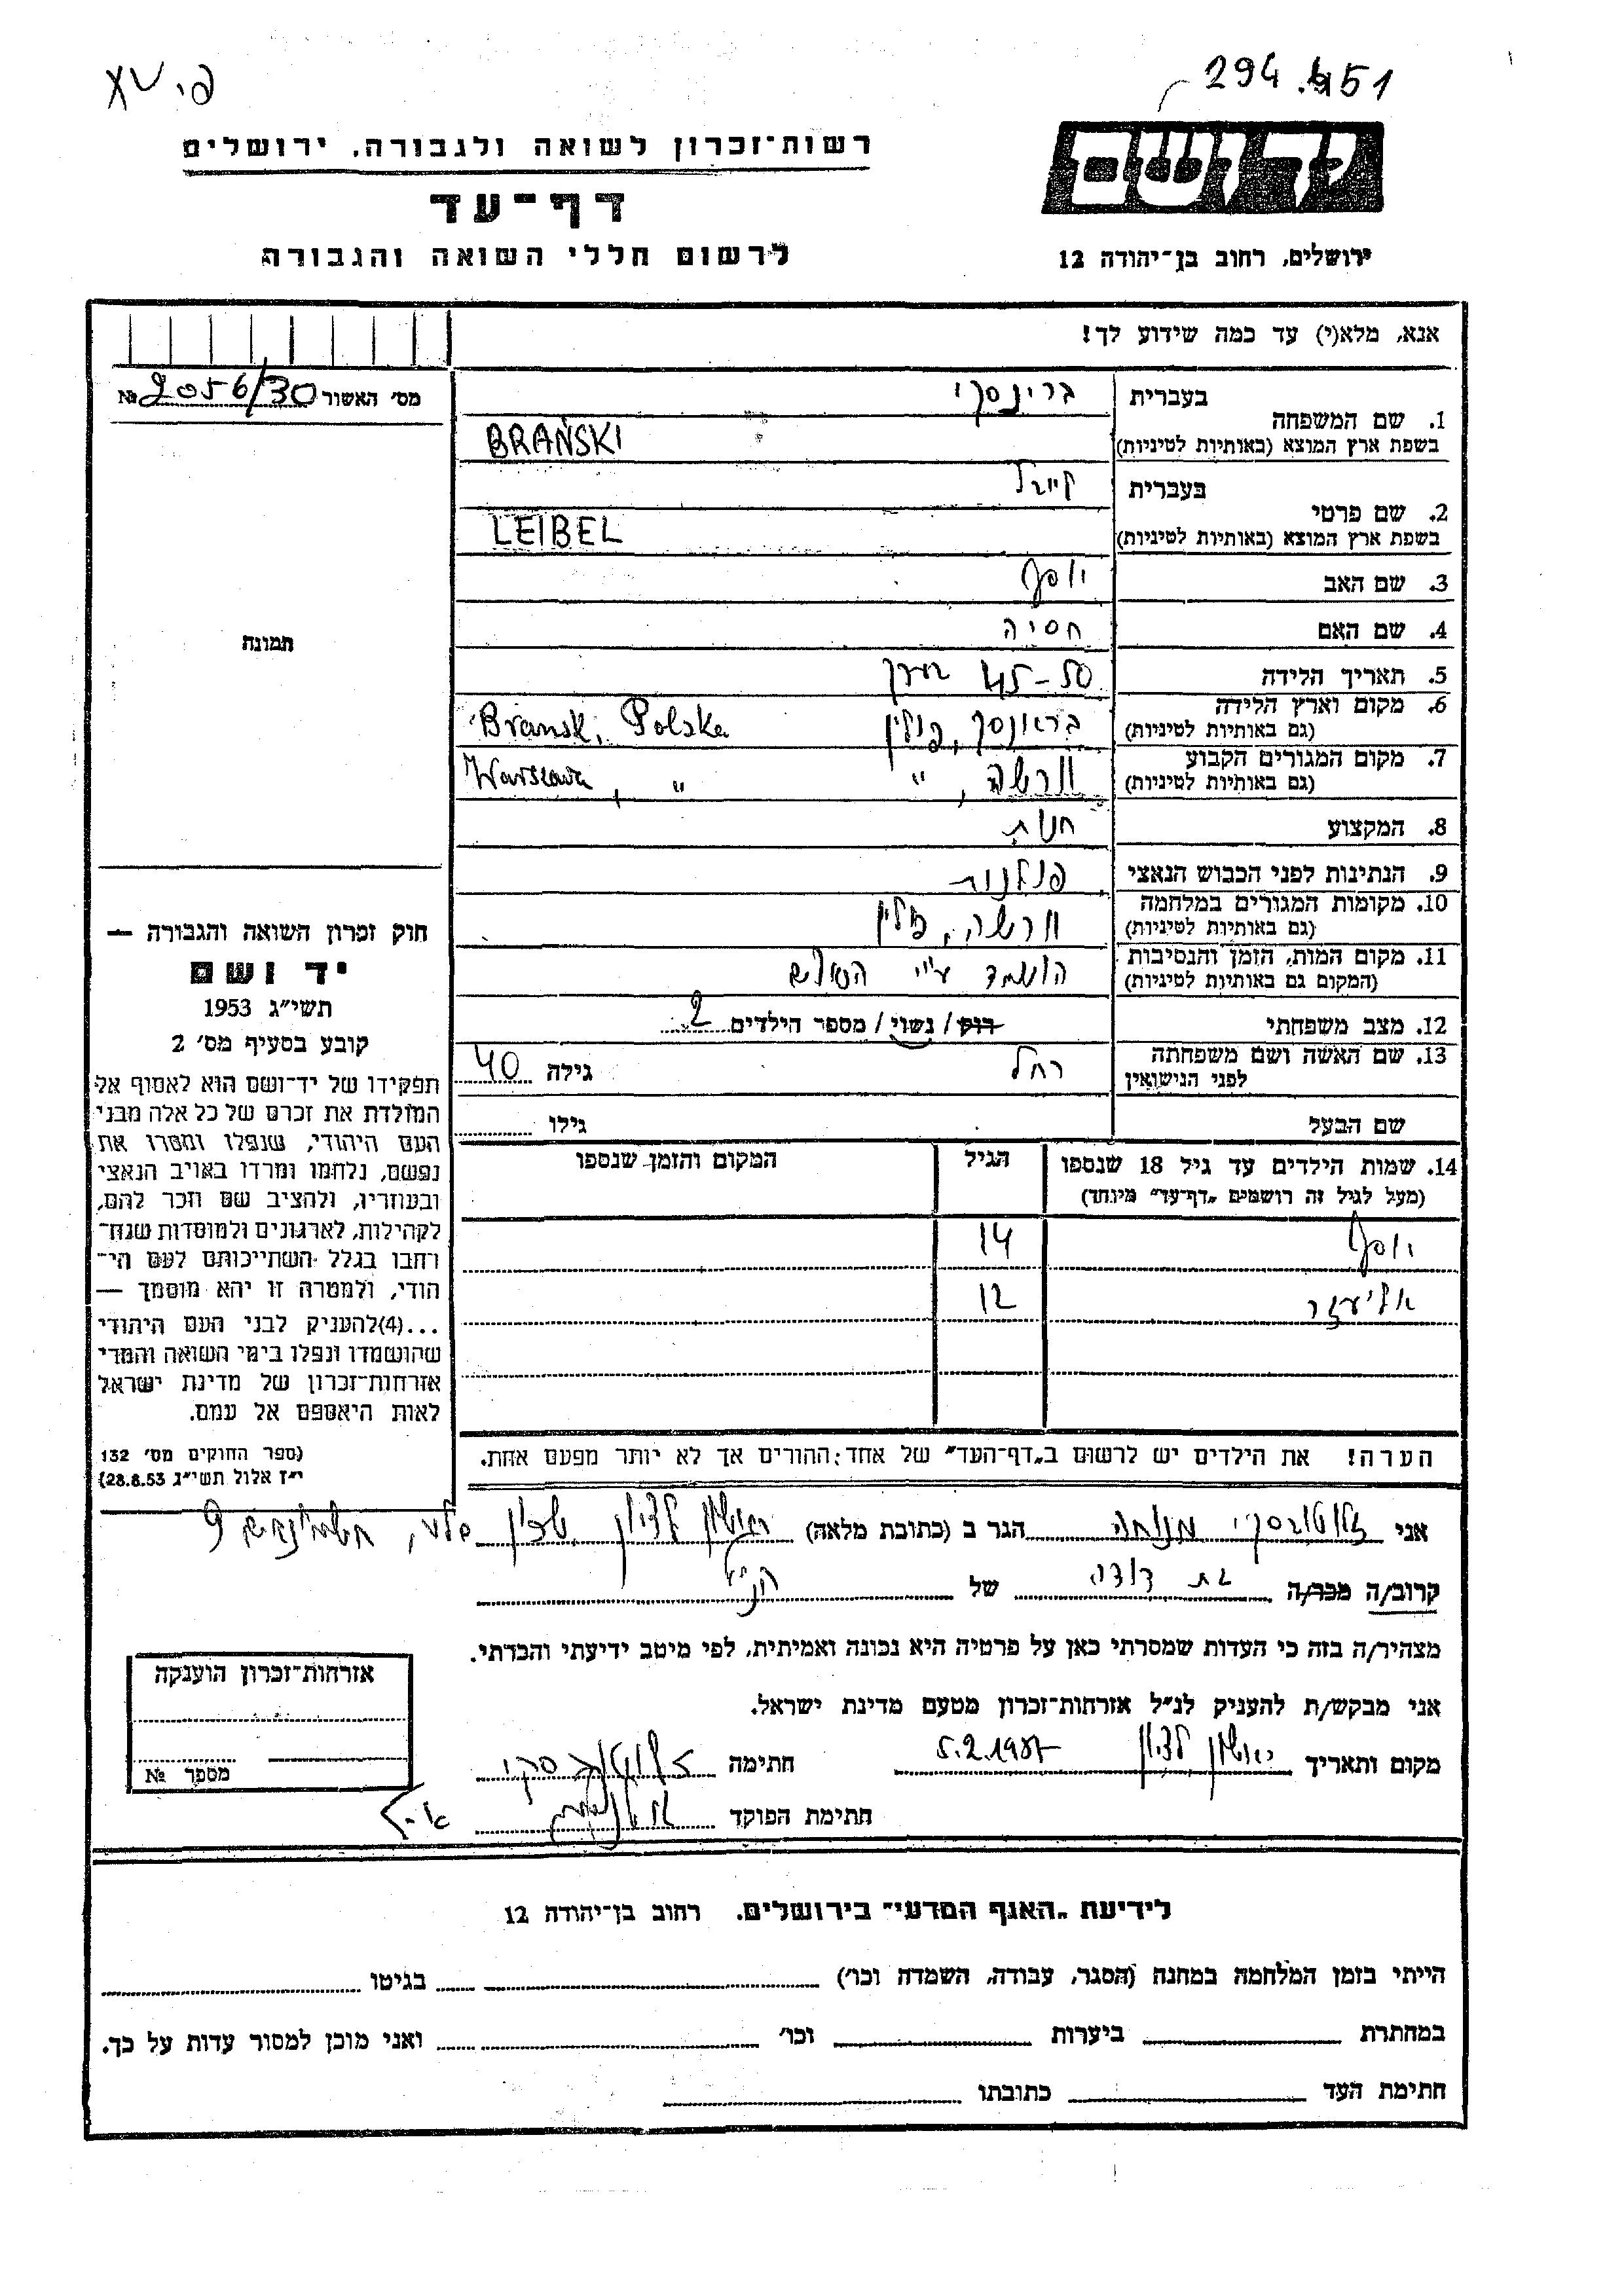 294.451
פ.י XV
יד ושם
רשות־זכרון לשואה ולגבורה, ירושלים
דף־עד
לרשום חללי השואה והגבורה
ירושלים, רחוב בן־יהודה 12
אנא, מלא(י) עד כמה שידוע לך!
מס׳ האשור № 2056/30
תמונה
1. שם המשפחה
בעברית ברינסקי
בשפת ארץ המוצא (באותיות לטיניות) BRAŃSKI
2. שם פרטי
בעברית לייבל
בשפת ארץ המוצא (באותיות לטיניות) LEIBEL
3. שם האב יוסף
4. שם האם חסיה
5. תאריך הלידה 45-50 בערך
6. מקום וארץ הלידה
(גם באותיות לטיניות) בראנסק, פולין Bransk, Polska
7. מקום המגורים הקבוע
(גם באותיות לטיניות) וורשה, " Warszawa, "
8. המקצוע חנות
9. הנתינות לפני הכבוש הנאצי פולנית
10. מקומות המגורים במלחמה
(גם באותיות לטיניות) וורשה, פולין
11. מקום המות, הזמן והנסיבות
(המקום גם באותיות לטיניות) הושמד ע"י
12. מצב משפחתי רווק / נשוי / מספר הילדים 2
13. שם האשה ושם משפחתה
לפני הנישואין רחל גילה 40
שם הבעל גילו
14. שמות הילדים עד גיל 18 שנספו
(מעל לגיל זה רושמים „דף־עד״ מיוחד)
הגיל
המקום והזמן שנספו
יוסף 14
אליעזר 12
הערה! את הילדים יש לרשום ב„דף־העד״ של אחד ההורים אך לא יותר מפעם אחת.
חוק זכרון השואה והגבורה —
יד ושם
תשי״ג 1953
קובע בסעיף מס׳ 2
תפקידו של יד־ושם הוא לאסוף אל
המולדת את זכרם של כל אלה מבני
העם היהודי, שנפלו ומסרו את
נפשם, נלחמו ומרדו באויב הנאצי
ובעוזריו, ולהציב שם וזכר להם,
לקהילות, לארגונים ולמוסדות שנח־
רבו בגלל השתייכותם לעם הי־
הודי, ולמטרה זו יהא מוסמך —
...(4) להעניק לבני העם היהודי
שהושמדו ונפלו בימי השואה והמרי
אזרחות־זכרון של מדינת ישראל
לאות היאספם אל עמם.
(ספר החוקים מס׳ 132
י״ז אלול תשי״ג 28.8.53)
אני זלוטובסקי מנוחה הגר ב (כתובת מלאה) ראשון לציון 9
קרוב/ה מכר/ה בת דודה של הנ"ל
מצהיר/ה בזה כי העדות שמסרתי כאן על פרטיה היא נכונה ואמיתית, לפי מיטב ידיעתי והכרתי.
אני מבקש/ת להעניק לנ״ל אזרחות־זכרון מטעם מדינת ישראל.
מקום ותאריך ראשון לציון 5.2.1957 חתימה זלוטובסקי
חתימת הפוקד
אזרחות־זכרון הוענקה
מספר №
לידיעת „האגף המדעי״ בירושלים, רחוב בן־יהודה 12
הייתי בזמן המלחמה במחנה (הסגר, עבודה, השמדה וכו׳) בגיטו
במחתרת ביערות וכו׳ ואני מוכן למסור עדות על כך.
חתימת העד כתובתו